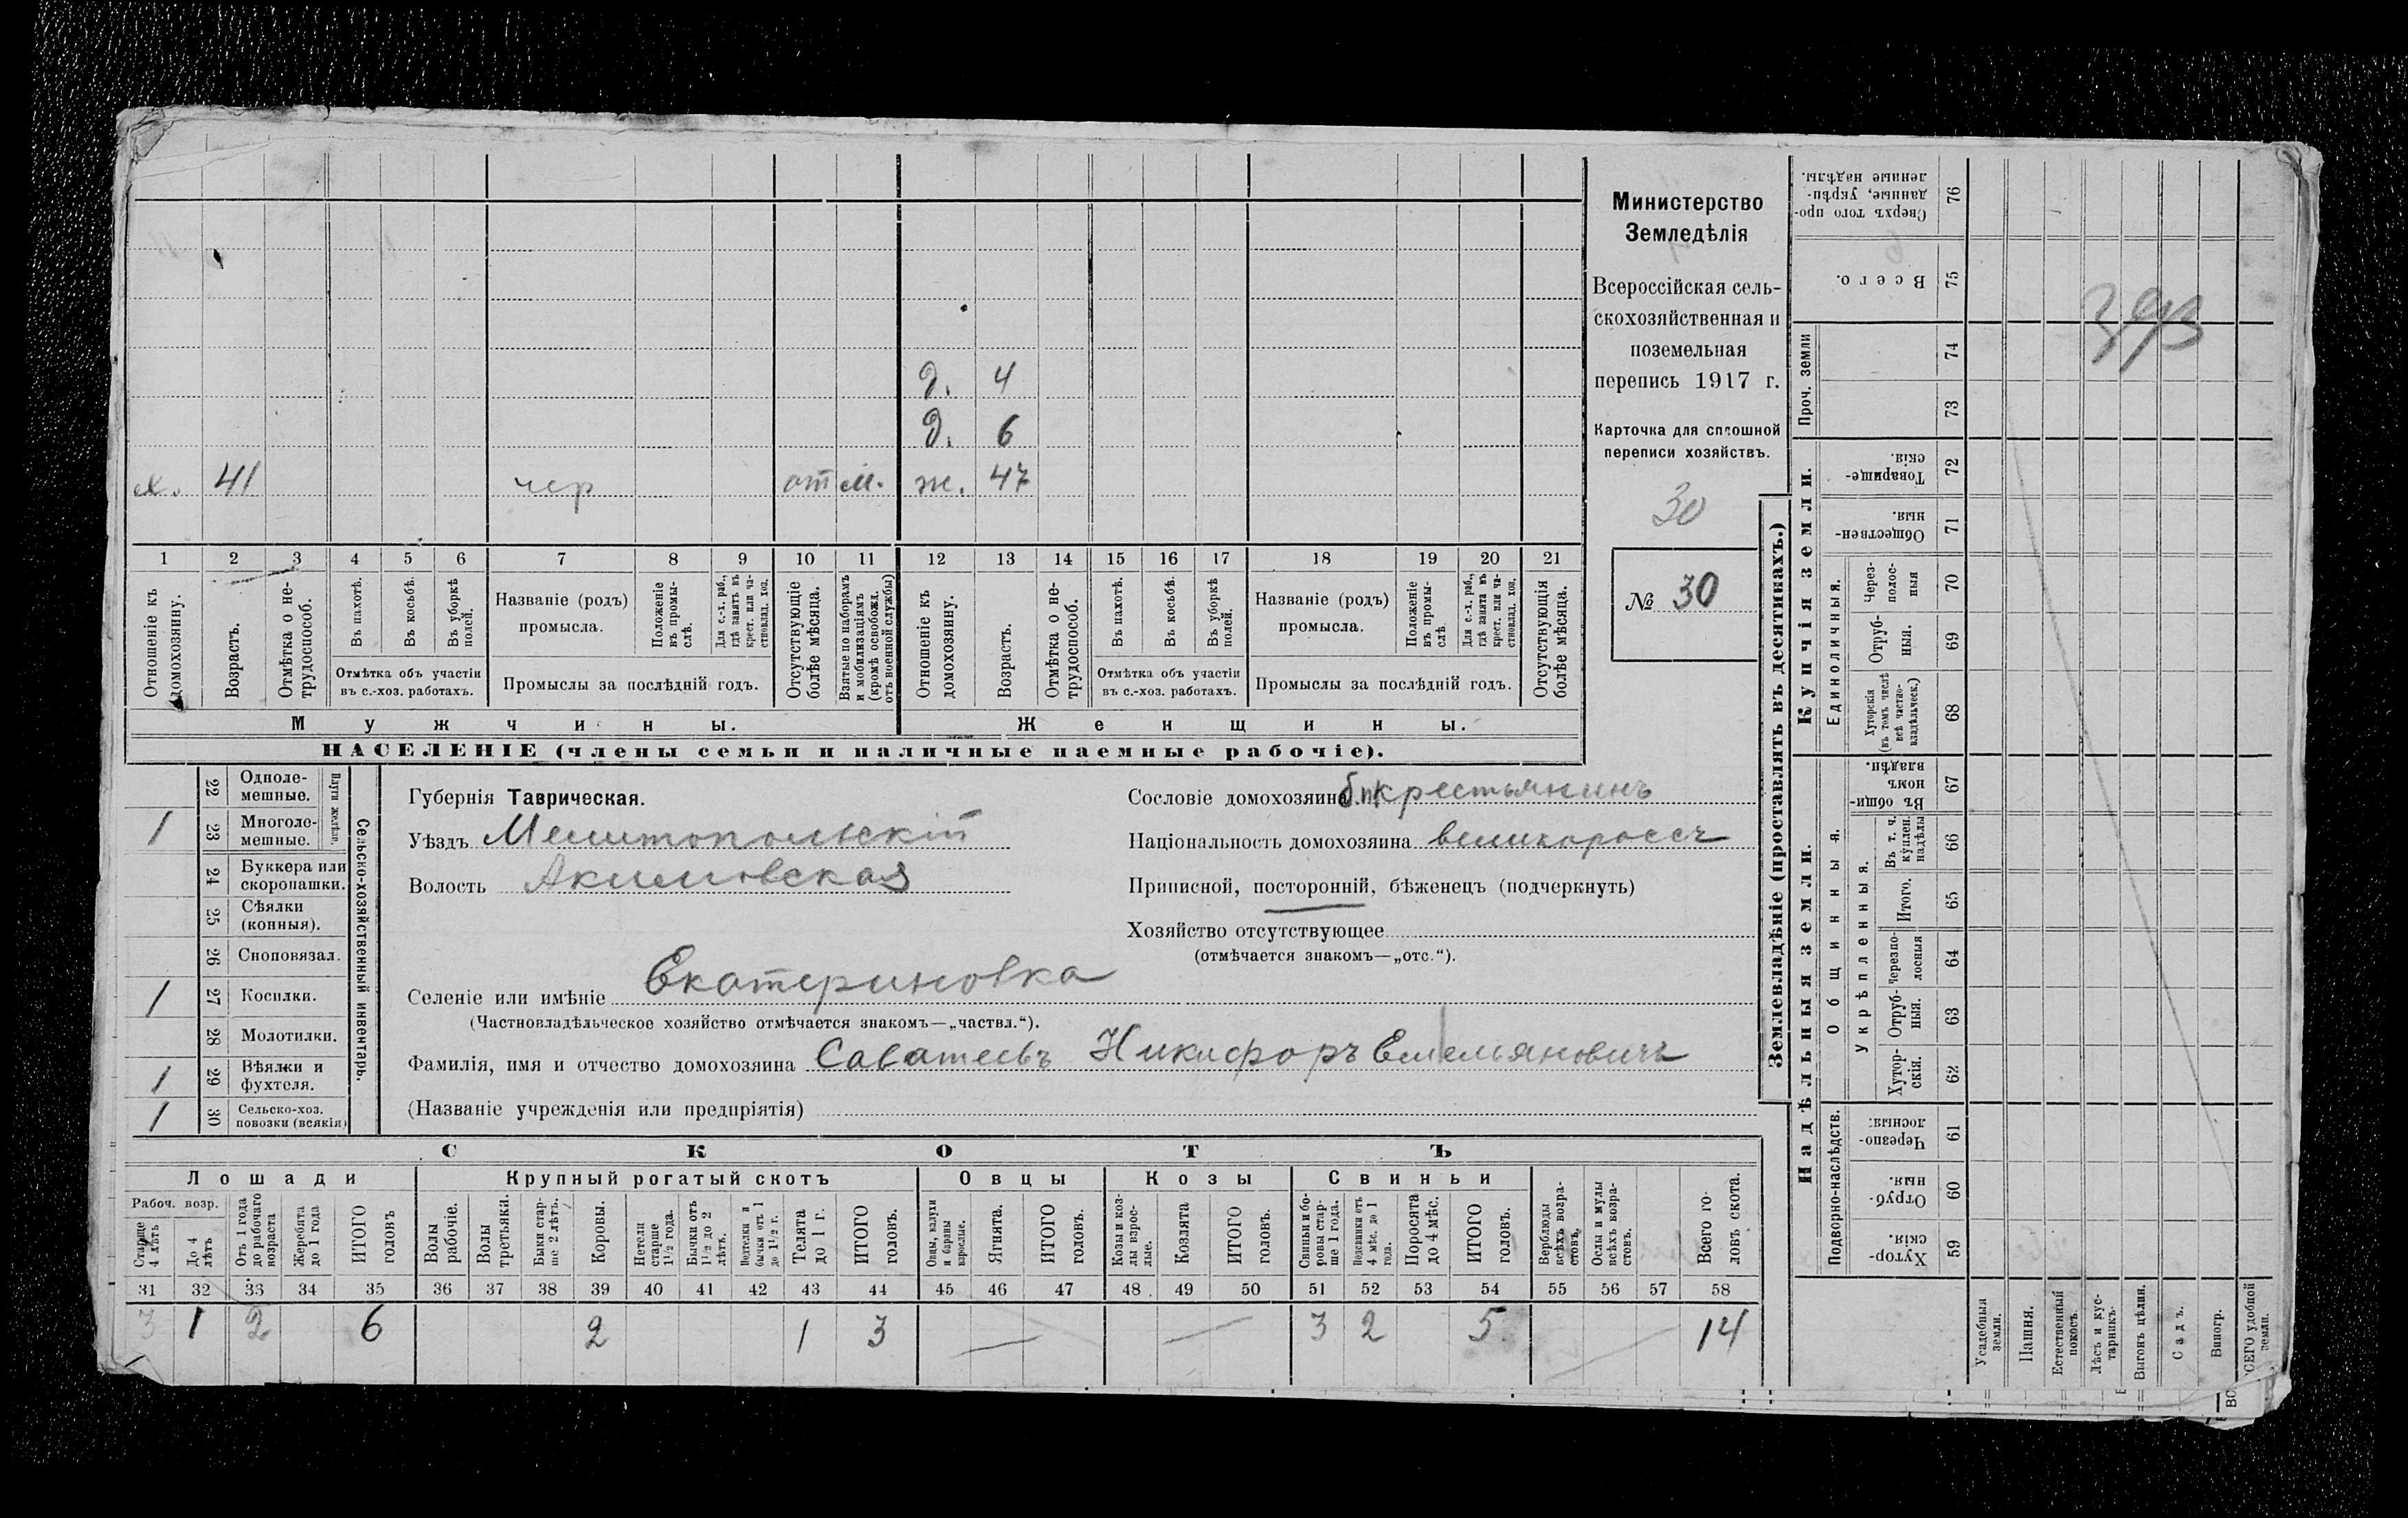 Министерство
Земледѣлія
Всероссійская сель-
скохозяйственная и
поземельная
перепись 1917 г.
Карточка для сплошной
переписи хозяйствъ.
30
№ 30
393
д. 4
д. 6
х. 41 чер от м. ж. 47
1 2 3 4 5 6 7 8 9 10 11 12 13 14 15 16 17 18 19 20 21
Отношеніе къ домохозяину.
Возрастъ.
Отмѣтка о не-
трудоспособ.
Въ пахотѣ.
Въ косьбѣ.
Въ уборкѣ полей.
Отмѣтка объ участіи
въ с.-хоз. работахъ.
Названіе (родъ)
промысла.
Положеніе въ промы-
слѣ.
Для с.-х. раб.,
гдѣ занятъ въ
крест. или ча-
стновлад. хоз.
Промыслы за послѣдній годъ.
Отсутствующіе болѣе мѣсяца.
Взятые по наборамъ
и мобилизаціямъ
(кромѣ освобожд.
отъ военной службы)
Отношеніе къ домохозяину.
Возрастъ.
Отмѣтка о не-
трудоспособ.
Въ пахотѣ.
Въ косьбѣ.
Въ уборкѣ полей.
Отмѣтка объ участіи
въ с.-хоз. работахъ.
Названіе (родъ)
промысла.
Положеніе въ промы-
слѣ.
Для с.-х. раб.,
гдѣ занята въ
крест. или ча-
стновлад. хоз.
Промыслы за послѣдній годъ.
Отсутствующія болѣе мѣсяца.
Мужчины.
Женщины.
НАСЕЛЕНІЕ (члены семьи и наличные наемные рабочіе).
Сельско-хозяйственный инвентарь.
Плуги желѣзн.
22 Одноле-
мешные.
1 23 Многоле-
мешные.
24 Буккера или
скоропашки.
25 Сѣялки
(конныя).
26 Сноповязал.
1 27 Косилки.
28 Молотилки.
1 29 Вѣялки и
фухтеля.
1 30 Сельско-хоз.
повозки (всякія)
Губернія Таврическая.
Уѣздъ Мелитопольскій
Волость Акимовская
Сословіе домохозяина крестьянинъ
Національность домохозяина великороссъ
Приписной, посторонній, бѣженецъ (подчеркнуть)
Хозяйство отсутствующее
(отмѣчается знакомъ—„отс.“).
Селеніе или имѣніе Екатериновка
(Частновладѣльческое хозяйство отмѣчается знакомъ—„частвл.“).
Фамилія, имя и отчество домохозяина Саватеевъ Никифоръ Емельяновичъ
(Названіе учрежденія или предпріятія)
СКОТЪ
Лошади
Крупный рогатый скотъ
Овцы
Козы
Свиньи
Рабоч. возр.
Старше 4 лѣтъ
До 4 лѣтъ
Отъ 1 года до рабочаго возраста
Жеребята до 1 года
ИТОГО головъ
Волы рабочіе.
Волы третьяки.
Быки стар-
ше 2 лѣтъ.
Коровы.
Нетели старше 1½ года.
Бычки отъ 1½ до 2 лѣтъ.
Нетелки и бычки отъ 1 до 1½ г.
Телята до 1 г.
ИТОГО головъ.
Овцы, валухи и бараны взрослые.
Ягнята.
ИТОГО головъ.
Козы и коз-
лы взрос-
лые.
Козлята
ИТОГО головъ.
Свиньи и бо-
ровы стар-
ше 1 года.
Подсвинки отъ 4 мѣс. до 1 года.
Поросята до 4 мѣс.
ИТОГО головъ.
Верблюды всѣхъ возра-
стовъ.
Ослы и мулы всѣхъ возра-
стовъ.
Всего го-
ловъ скота.
31 32 33 34 35 36 37 38 39 40 41 42 43 44 45 46 47 48 49 50 51 52 53 54 55 56 57 58
3 1 2 6 2 1 3 3 2 5 14
Землевладѣніе (проставлять въ десятинахъ.)
Купчія земли.
Надѣльныя земли.
Сверхъ того про-
данные, укрѣп-
ленные надѣлы. 76
Всего. 75
Проч. земли
74
73
Товарище-
скія. 72
Обществен-
ныя. 71
Единоличныя.
Через-
полос-
ныя 70
Отруб-
ныя. 69
Хуторскія
(въ томъ числѣ
всѣ частно-
владѣльческ.) 68
Общинныя.
Въ общи-
номъ
владѣн. 67
Укрѣпленныя.
Въ т. ч.
куплен.
надѣлы 66
Итого. 65
Черезпо-
лосныя 64
Отруб-
ныя. 63
Хутор-
скія. 62
Подворно-наслѣдств.
Черезпо-
лосныя. 61
Отруб-
ныя. 60
Хутор-
скія. 59
Усадебныя земли.
Пашня.
Естественный покосъ.
Лѣсъ и кус-
тарникъ.
Выгонъ цѣлин.
Садъ.
Виногр.
ВСЕГО удобной земли.